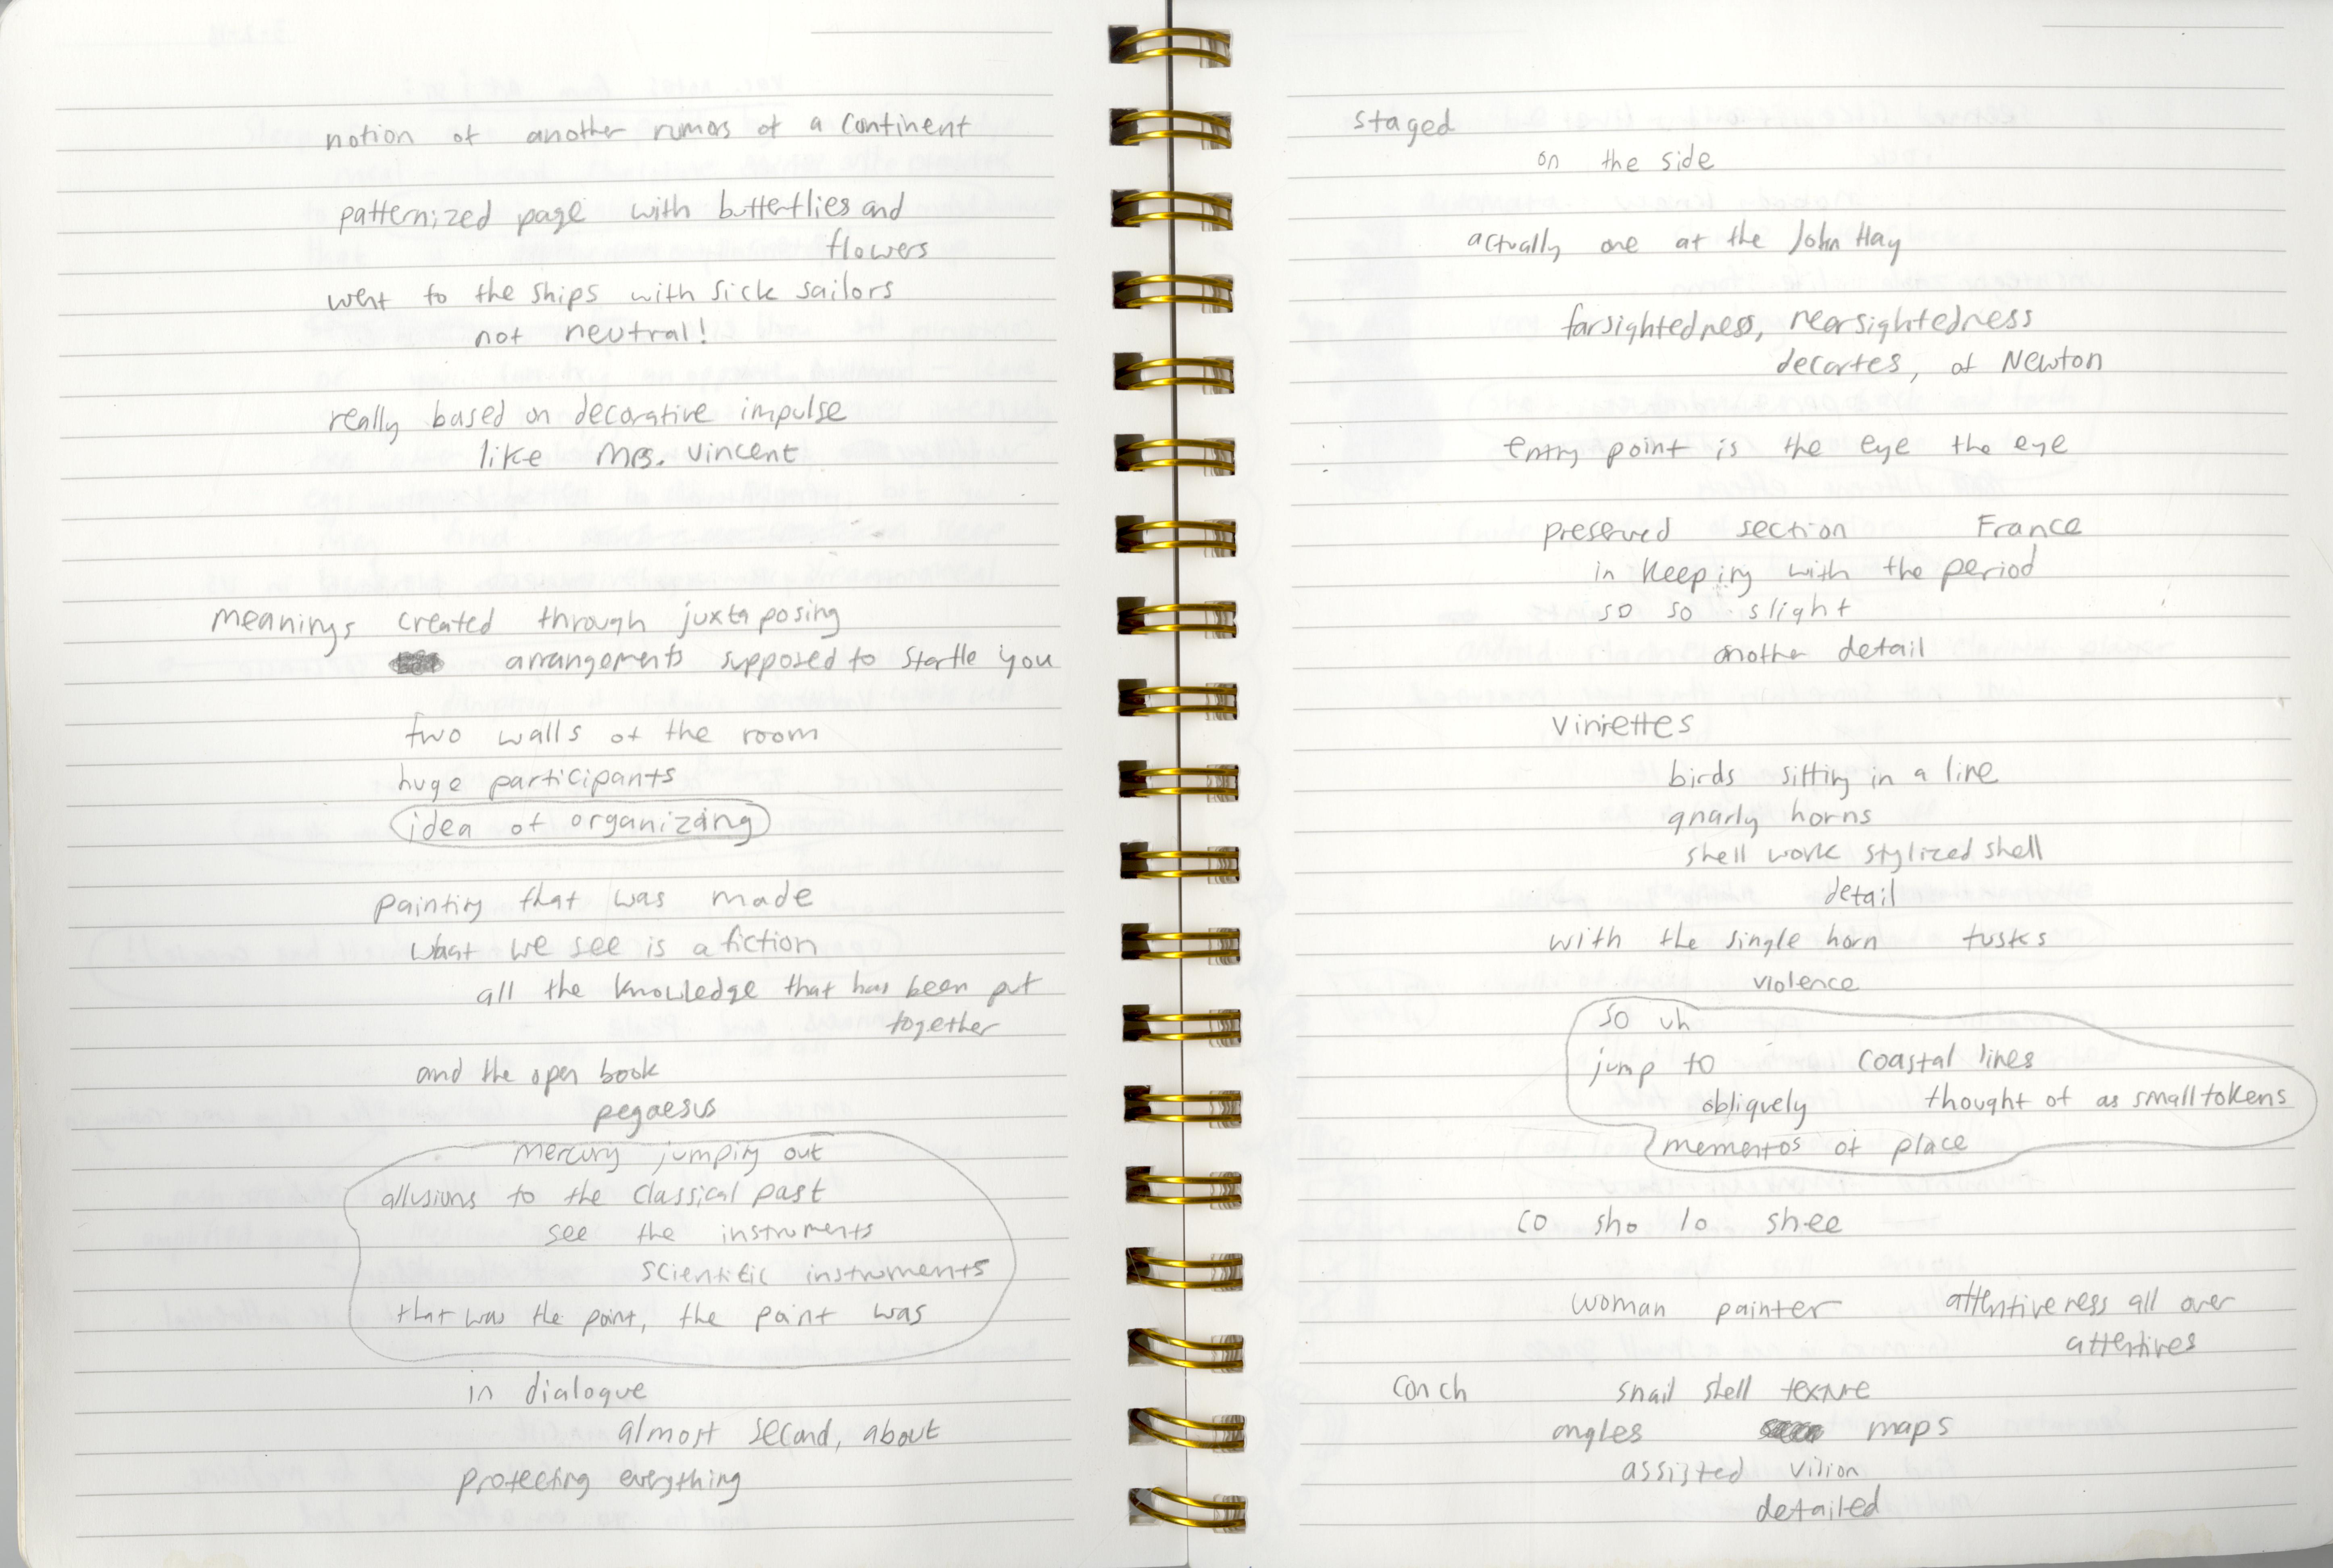 notion of another rumors of a continent
patternized page with butterflies and
flowers
went to the ships with sick sailors
not neutral!
really based on decorative impulse
like Mrs. Vincent
meanings created through juxtaposing
arrangements supposed to startle you
two walls of the room
huge participants
idea of organizing
painting that was made
what we see is a fiction
all the knowledge that has been put
together
and the open book
pegaesus
mercury jumping out
allusions to the classical past
see the instruments
scientific instruments
that was the point, the point was
in dialogue
almost second, about
protecting everything
staged
on the side
actually one at the John Hay
farsightedness, nearsightedness
decartes, of Newton
entry point is the eye the eye
preserved section France
in keeping with the period
so so slight
another detail
viniettes
birds sitting in a line
gnarly horns
shell work stylized shell
detail
with the single horn tusks
violence
so uh
jump to coastal lines
obliquely thought of as small tokens
mementos of place
co sho lo shee
woman painter attentiveness all over
attentives
conch snail shell texture
angles maps
assisted vision
detailed